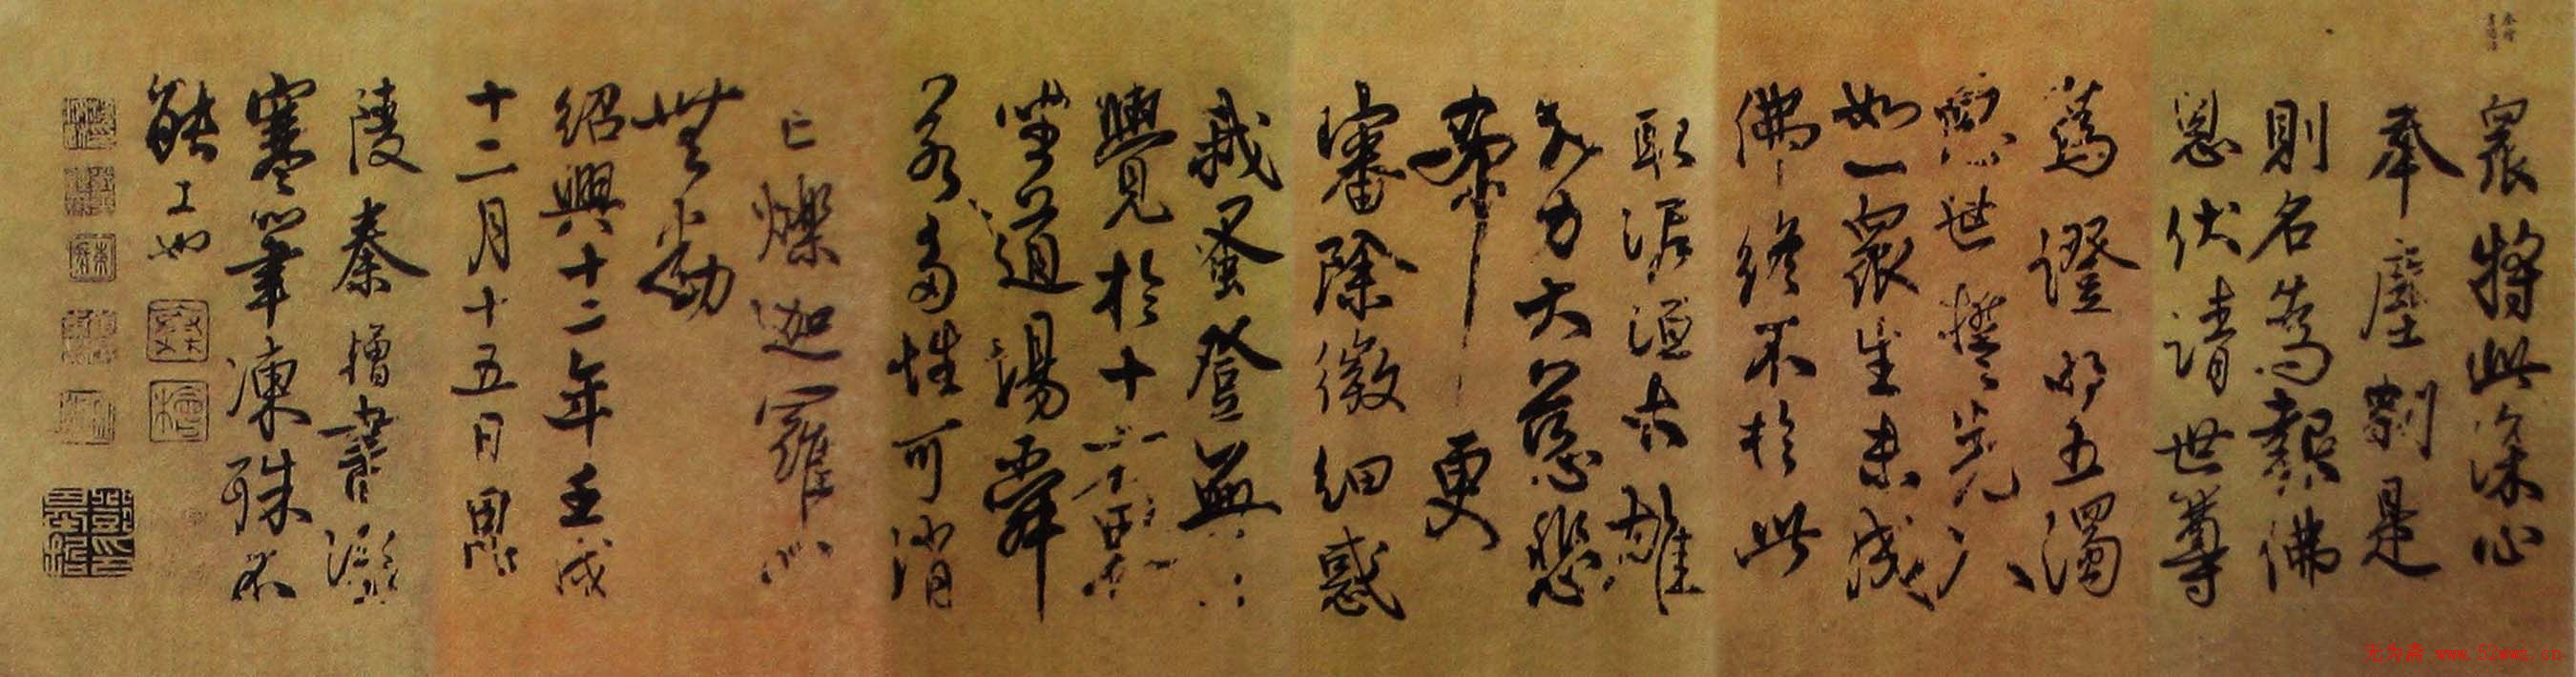 衆將此深心
奉塵剎是
則名為報佛
恩伏請世尊
為證明五濁
惡世誓先入
如一衆生未成
佛終不於此
取泥洹大雄
大力大慈悲
希更
審除微細惑
我蚤登無上
覺於十方界
坐道場舜
若多性可消
亡爍迦羅心
無動
紹興十二年壬戌
十二月十五日
陵秦檜書
寒筆凍殊不
能工也
无为斋 www.52wwz.cn